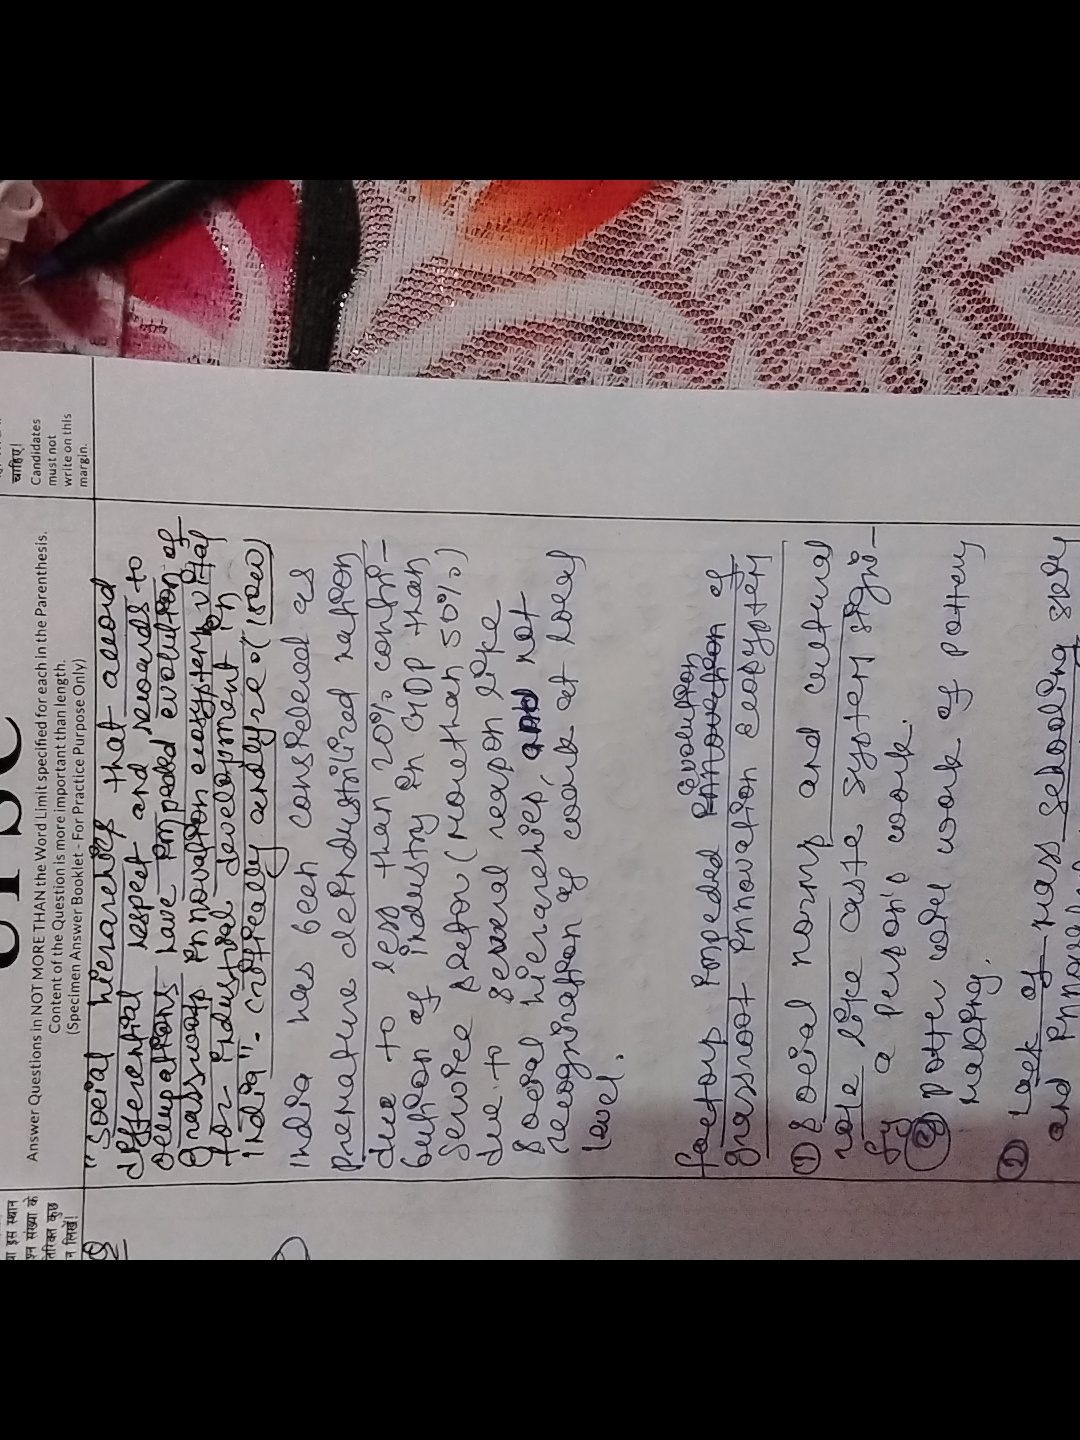 UPSC
वा इस स्थान
न संख्या के
तिरिक्त कुछ
न लिखें।
Answer Questions in NOT MORE THAN the Word Limit specified for each in the Parenthesis.
Content of the Question is more important than length.
(Specimen Answer Booklet - For Practice Purpose Only)
चाहिए।
Candidates
must not
write on this
margin.
"Social hierarchies that accord
differential respect and rewards to
occupations have impeded evolution of
grassroots innovation ecosystem vital
for industrial development in
India". critically analyze. (150w)
India has been considered as
premature deindustrilized nation
due to less than 20% contri-
bution of industry in GDP than
Service sector (More than 50%)
due to several reason like
social hierarchies, and not
recognisation of work at local
level.
Evoluution
factors impeded innovation of
grassroot innovation ecosystem
① Social norms and cultural
role like caste system signi-
fy a person's work.
eg potter will work of pottery
making.
② Lack of mass schooling
and